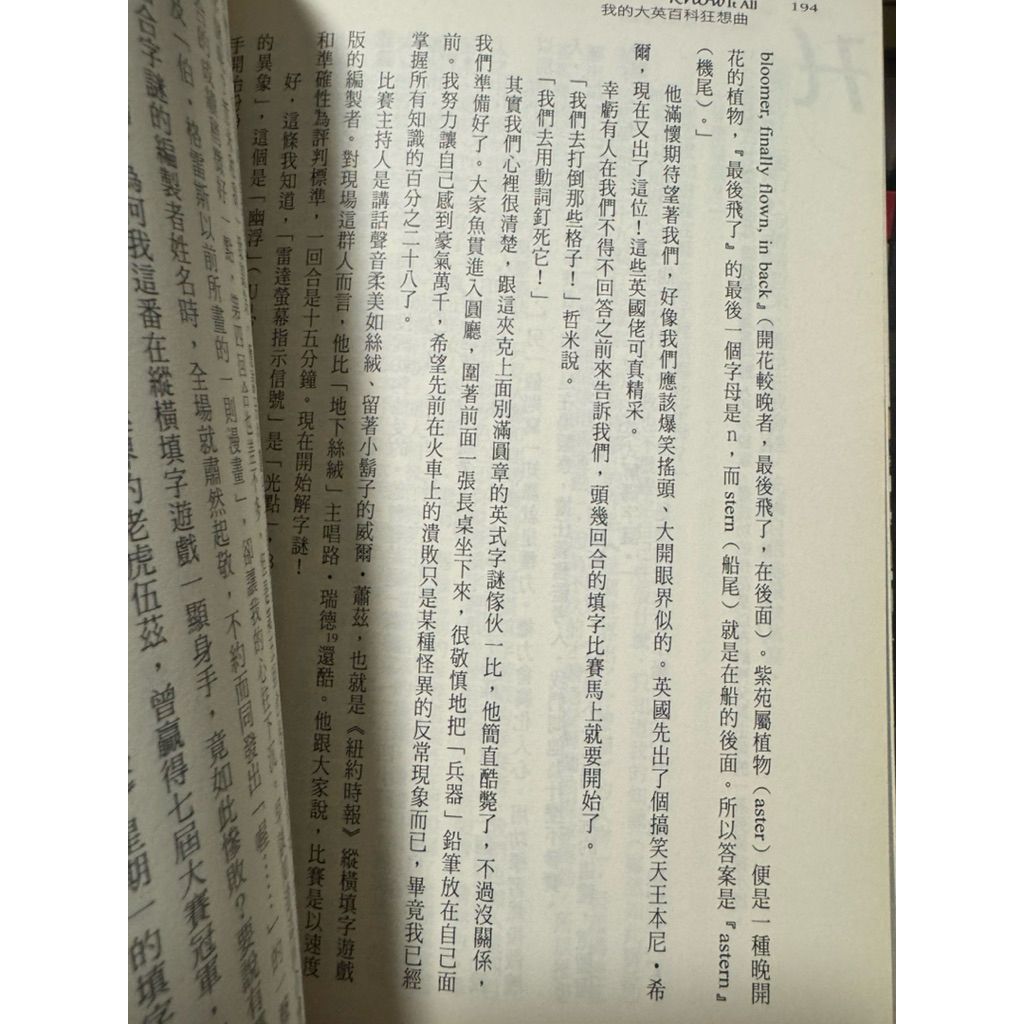 Know It All
我的大英百科狂想曲
194
bloomer, finally flown, in back』（開花較晚者，最後飛了，在後面）。紫苑屬植物（aster）便是一種晚開
花的植物，『最後飛了』的最後一個字母是 n，而 stern（船尾）就是在船的後面。所以答案是『astern』
（機尾）。」
他滿懷期待望著我們，好像我們應該爆笑搖頭、大開眼界似的。英國先出了個搞笑天王本尼・希
爾，現在又出了這位！這些英國佬可真精采。
幸虧有人在我們不得不回答之前來告訴我們，頭幾回合的填字比賽馬上就要開始了。
「我們去打倒那些格子！」哲米說。
「我們去用動詞釘死它！」
其實我們心裡很清楚，跟這夾克上面別滿圓章的英式字謎傢伙一比，他簡直酷斃了，不過沒關係，
我們準備好了。大家魚貫進入圓廳，圍著前面一張長桌坐下來，很敬慎地把「兵器」鉛筆放在自己面
前。我努力讓自己感到豪氣萬千，希望先前在火車上的潰敗只是某種怪異的反常現象而已，畢竟我已經
掌握所有知識的百分之二十八了。
比賽主持人是講話聲音柔美如絲絨、留著小鬍子的威爾・蕭茲，也就是《紐約時報》縱橫填字遊戲
版的編製者。對現場這群人而言，他比「地下絲絨」主唱路・瑞德19還酷。他跟大家說，比賽是以速度
和準確性為評判標準，一回合是十五分鐘。現在開始解字謎！
好，這條我知道，「雷達螢幕指示信號」是「光點」，
的異象」，這個是「幽浮」
手開始
伯・格雷斯以前所畫的一則漫畫」，卻讓我的心
合字謎的編製者姓名時，全場就肅然起敬，不約而同發出一
為何我這番在縱橫填字遊戲一顯身手，竟如此慘敗？要說有
的老虎伍茲，曾贏得七屆大賽冠軍，
星期一的填字